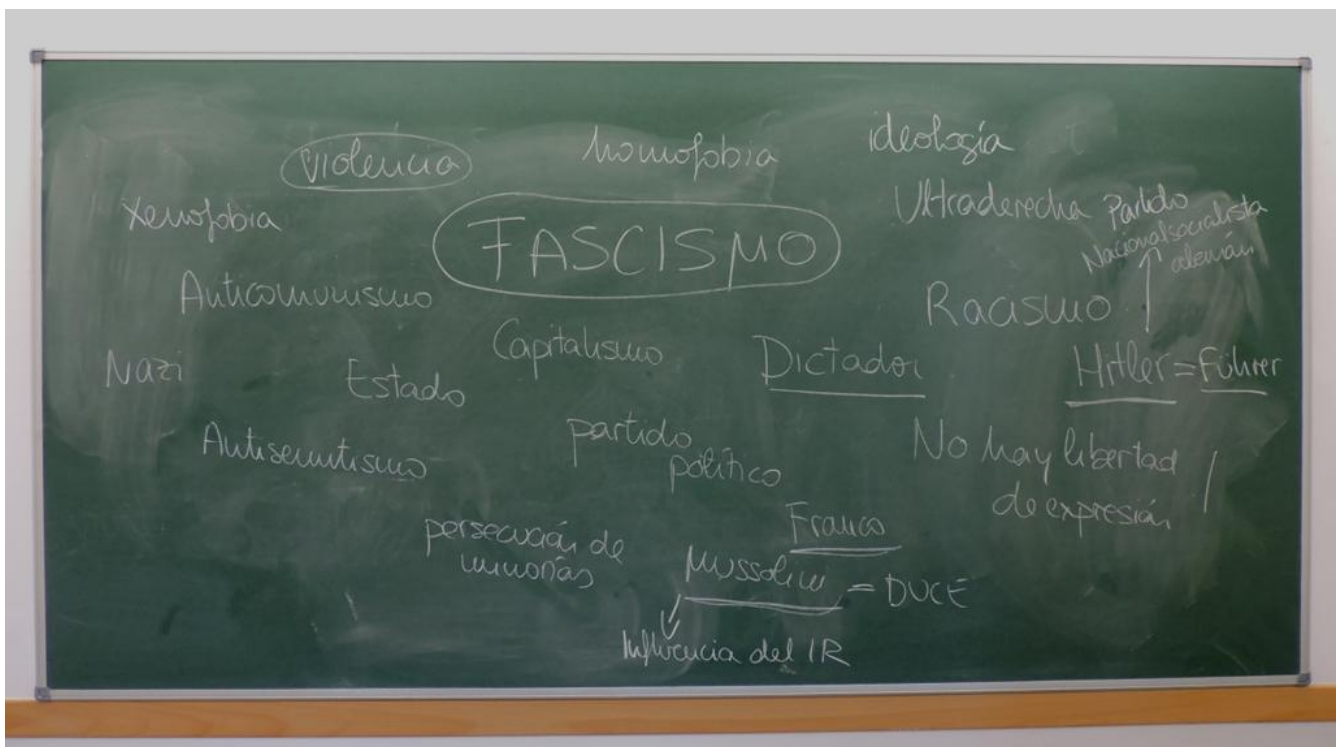 violencia
homofobia
ideología
Xenofobia
FASCISMO
Ultraderecha
Partido
Nacionalsocialista
alemán
Anticomunismo
Racismo
Nazi
Estado
Capitalismo
Dictador
Hitler = Führer
Antisemitismo
partido
político
No hay libertad
de expresión
persecución de
minorías
Franco
Mussolini = DUCE
Influencia del IR